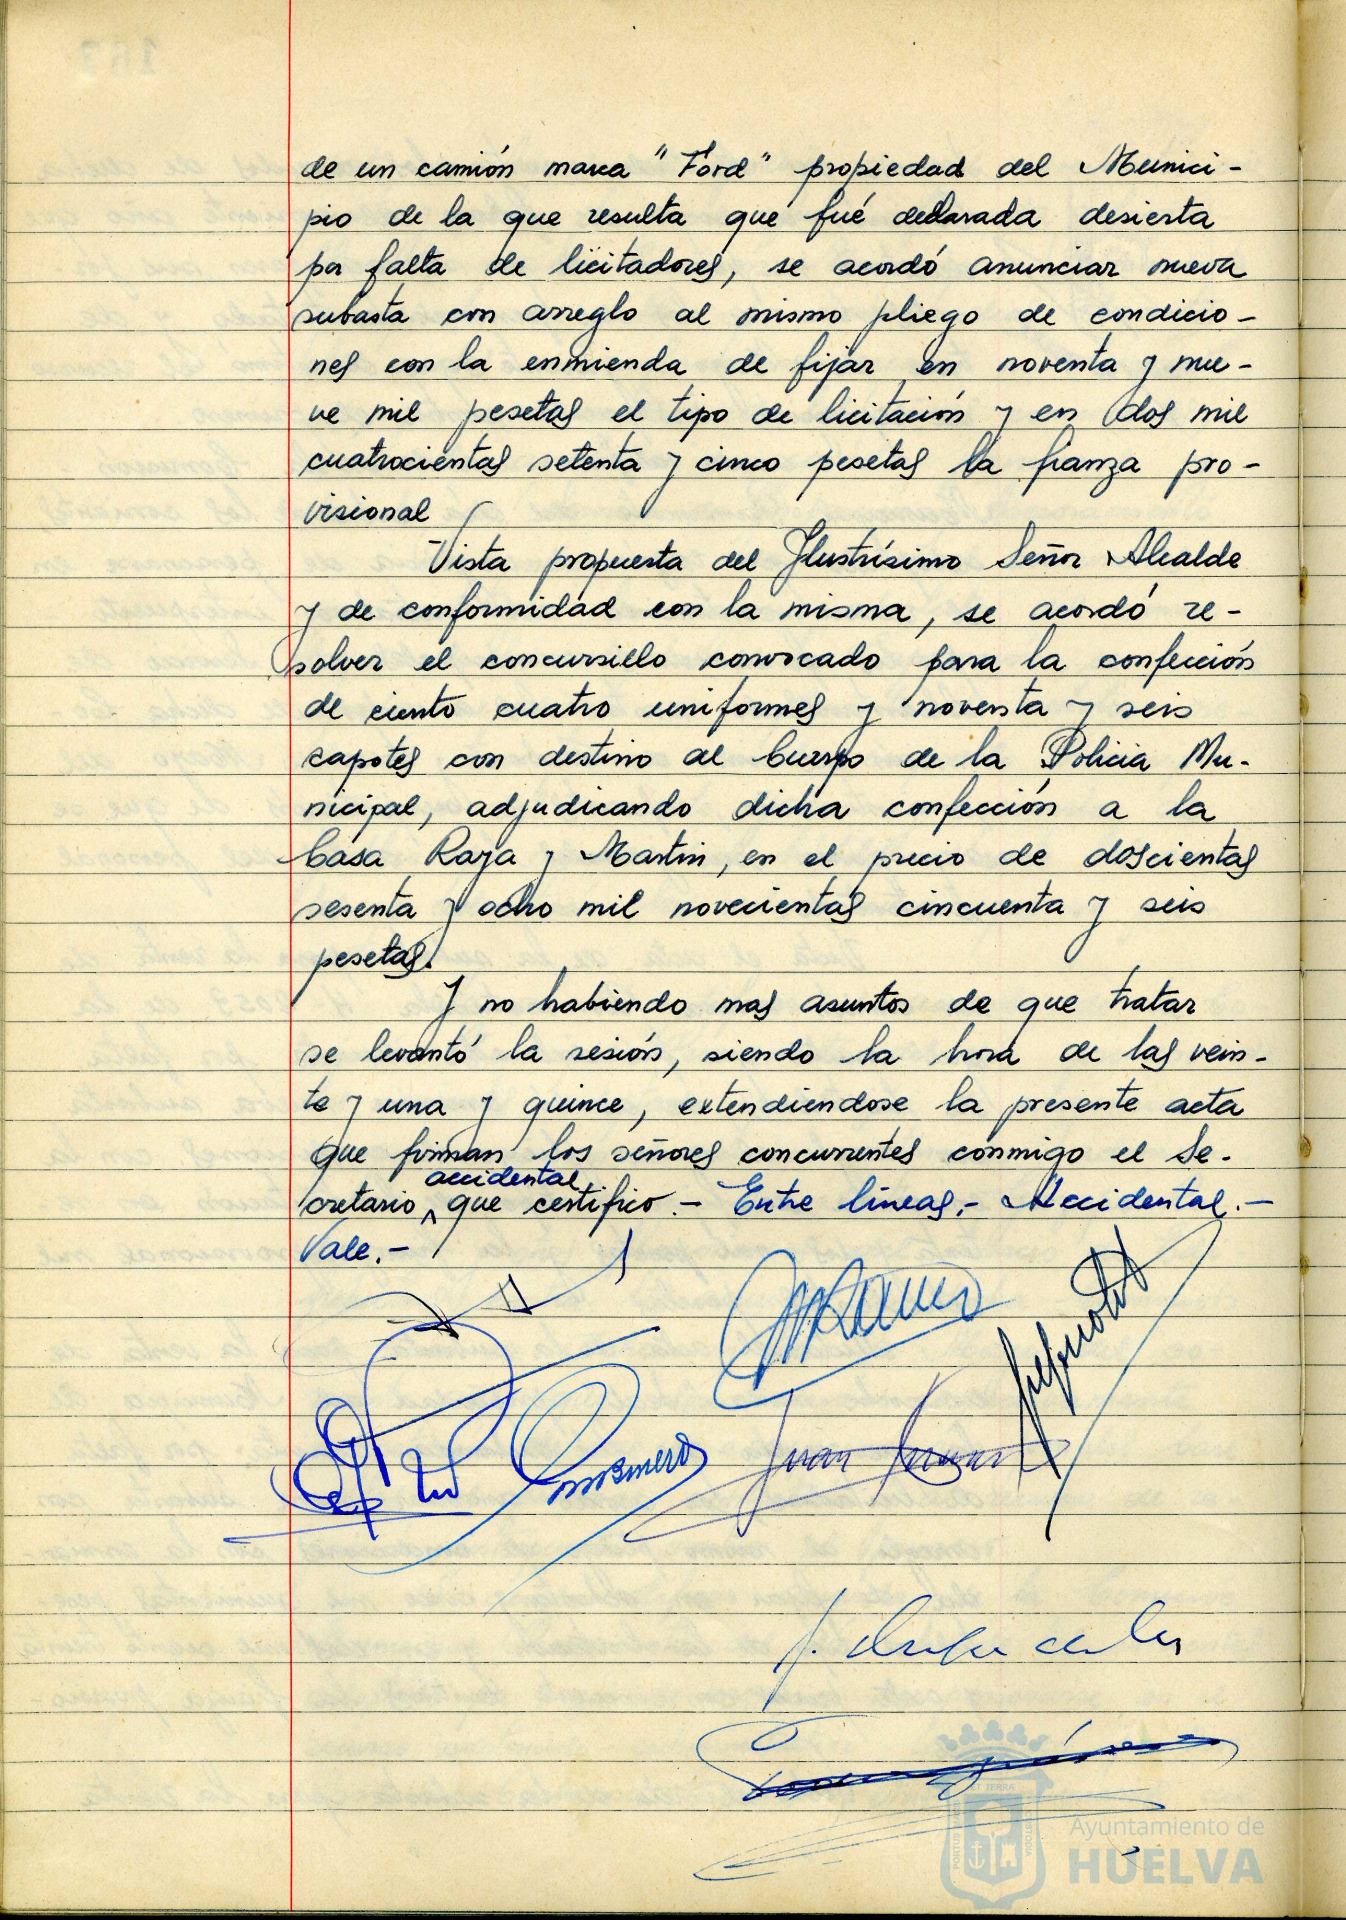 de un camión marca "Ford" propiedad del Munici-
pio de la que resulta que fué declarada desierta
por falta de licitadores, se acordó anunciar nueva
subasta con arreglo al mismo pliego de condicio-
nes con la enmienda de fijar en noventa y nue-
ve mil pesetas el tipo de licitación y en dos mil
cuatrocientas setenta y cinco pesetas la fianza pro-
visional
Vista propuesta del Ilustrísimo Señor Alcalde
y de conformidad con la misma, se acordó re-
solver el concursillo convocado para la confección
de ciento cuatro uniformes y noventa y seis
capotes con destino al Cuerpo de la Policia Mu-
nicipal, adjudicando dicha confección a la
Casa Raya y Martin, en el precio de doscientas
sesenta y ocho mil novecientas cincuenta y seis
pesetas.
Y no habiendo mas asuntos de que tratar
se levantó la sesión, siendo la hora de las vein-
te y una y quince, extendiendose la presente acta
que firman los señores concurrentes conmigo el Se-
accidental,
cretario, que certifico.- Entre líneas.- Accidental.-
Vale.-
Juan
Ayuntamiento de
HUELVA